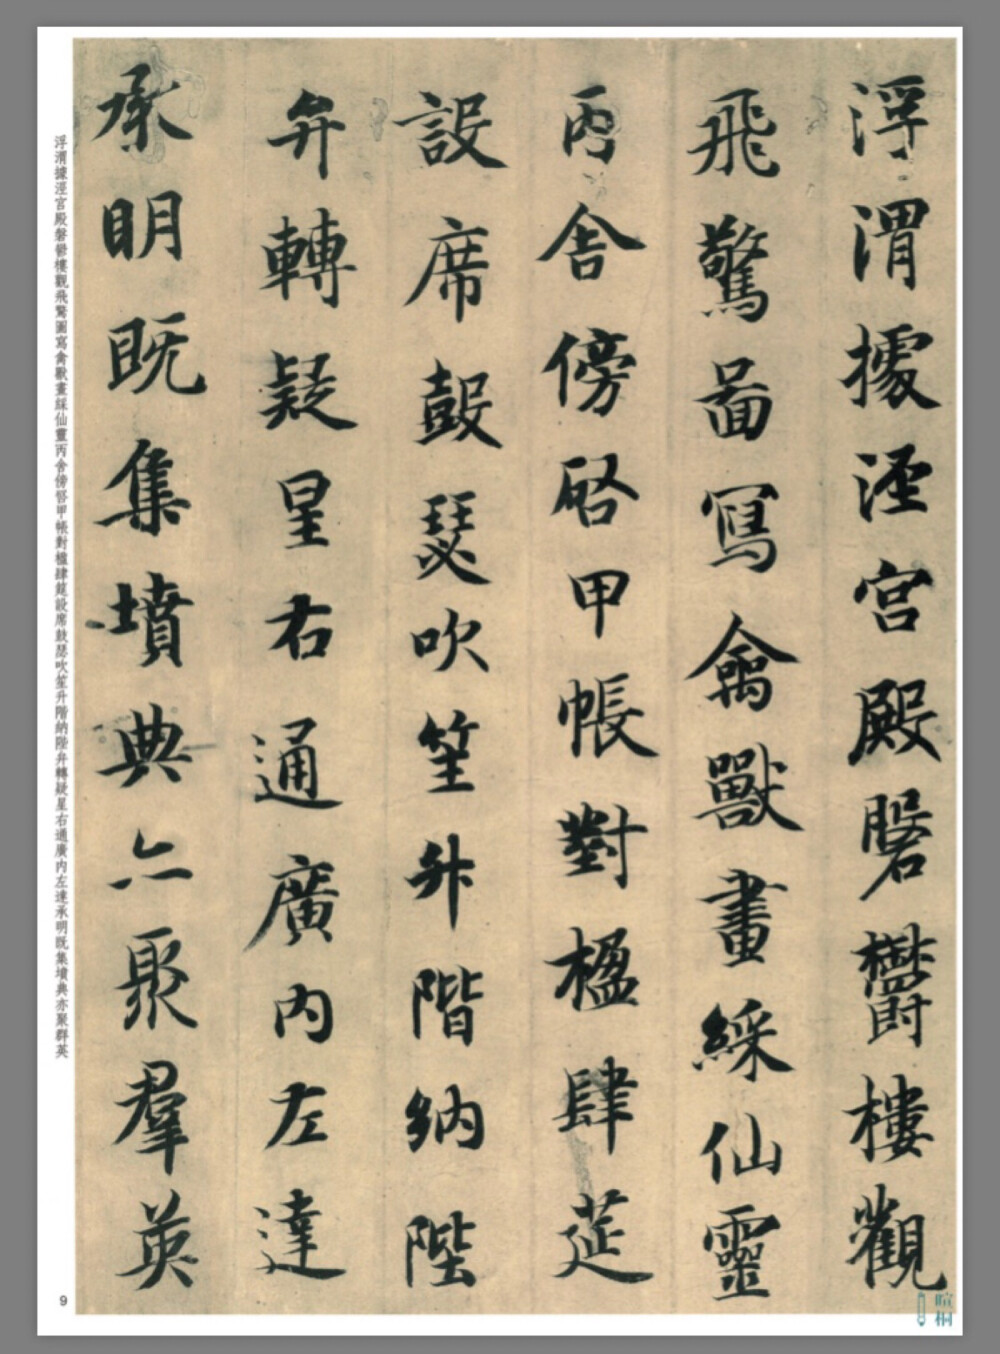 浮渭據涇宮殿磐鬱樓觀
飛驚圖寫禽獸畫綵仙靈
丙舍傍啓甲帳對楹肆筵
設席鼓瑟吹笙升階納陛
弁轉疑星右通廣內左達
承明既集墳典亦聚群英
浮渭據涇宮殿磐鬱樓觀飛驚圖寫禽獸畫綵仙靈丙舍傍啓甲帳對楹肆筵設席鼓瑟吹笙升階納陛弁轉疑星右通廣内左達承明既集墳典亦聚群英
9
暄桐